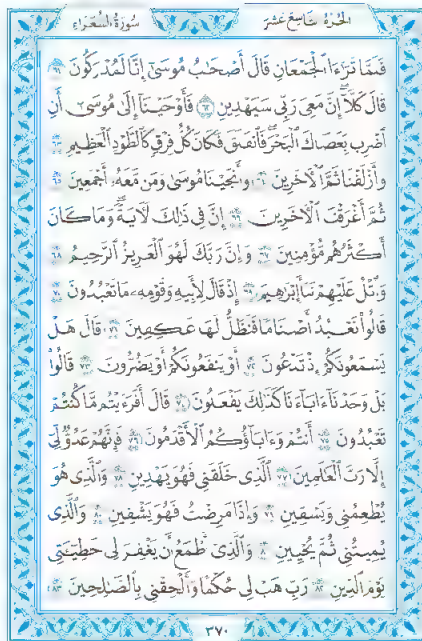 الجزء التاسع عشر
سورة الشعراء
فَلَمَّا تَرَٰٓءَا ٱلْجَمْعَانِ قَالَ أَصْحَٰبُ مُوسَىٰٓ إِنَّا لَمُدْرَكُونَ ٦١
قَالَ كَلَّآ إِنَّ مَعِىَ رَبِّى سَيَهْدِينِ ٦٢ فَأَوْحَيْنَآ إِلَىٰ مُوسَىٰٓ أَنِ
ٱضْرِب بِّعَصَاكَ ٱلْبَحْرَ فَٱنفَلَقَ فَكَانَ كُلُّ فِرْقٍ كَٱلطَّوْدِ ٱلْعَظِيمِ ٦٣
وَأَزْلَفْنَا ثَمَّ ٱلْءَاخَرِينَ ٦٤ وَأَنجَيْنَا مُوسَىٰ وَمَن مَّعَهُۥٓ أَجْمَعِينَ ٦٥
ثُمَّ أَغْرَقْنَا ٱلْءَاخَرِينَ ٦٦ إِنَّ فِى ذَٰلِكَ لَءَايَةً وَمَا كَانَ
أَكْثَرُهُم مُّؤْمِنِينَ ٦٧ وَإِنَّ رَبَّكَ لَهُوَ ٱلْعَزِيزُ ٱلرَّحِيمُ ٦٨
وَٱتْلُ عَلَيْهِمْ نَبَأَ إِبْرَٰهِيمَ ٦٩ إِذْ قَالَ لِأَبِيهِ وَقَوْمِهِۦ مَا تَعْبُدُونَ ٧٠
قَالُوا۟ نَعْبُدُ أَصْنَامًا فَنَظَلُّ لَهَا عَٰكِفِينَ ٧١ قَالَ هَلْ
يَسْمَعُونَكُمْ إِذْ تَدْعُونَ ٧٢ أَوْ يَنفَعُونَكُمْ أَوْ يَضُرُّونَ ٧٣ قَالُوا۟
بَلْ وَجَدْنَآ ءَابَآءَنَا كَذَٰلِكَ يَفْعَلُونَ ٧٤ قَالَ أَفَرَءَيْتُم مَّا كُنتُمْ
تَعْبُدُونَ ٧٥ أَنتُمْ وَءَابَآؤُكُمُ ٱلْأَقْدَمُونَ ٧٦ فَإِنَّهُمْ عَدُوٌّ لِّىٓ
إِلَّا رَبَّ ٱلْعَٰلَمِينَ ٧٧ ٱلَّذِى خَلَقَنِى فَهُوَ يَهْدِينِ ٧٨ وَٱلَّذِى هُوَ
يُطْعِمُنِى وَيَسْقِينِ ٧٩ وَإِذَا مَرِضْتُ فَهُوَ يَشْفِينِ ٨٠ وَٱلَّذِى
يُمِيتُنِى ثُمَّ يُحْيِينِ ٨١ وَٱلَّذِىٓ أَطْمَعُ أَن يَغْفِرَ لِى خَطِيٓـَٔتِى
يَوْمَ ٱلدِّينِ ٨٢ رَبِّ هَبْ لِى حُكْمًا وَأَلْحِقْنِى بِٱلصَّٰلِحِينَ ٨٣
٣٧٠